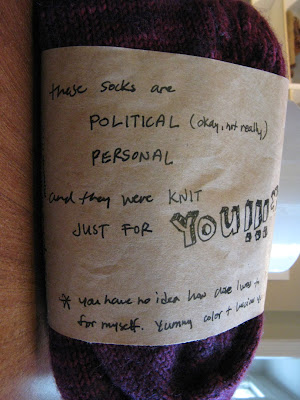 these socks are
POLITICAL (okay, not really)
PERSONAL
and they were KNIT
JUST FOR YOU!!!!
* you have no idea how close I was
for myself. Yummy color +